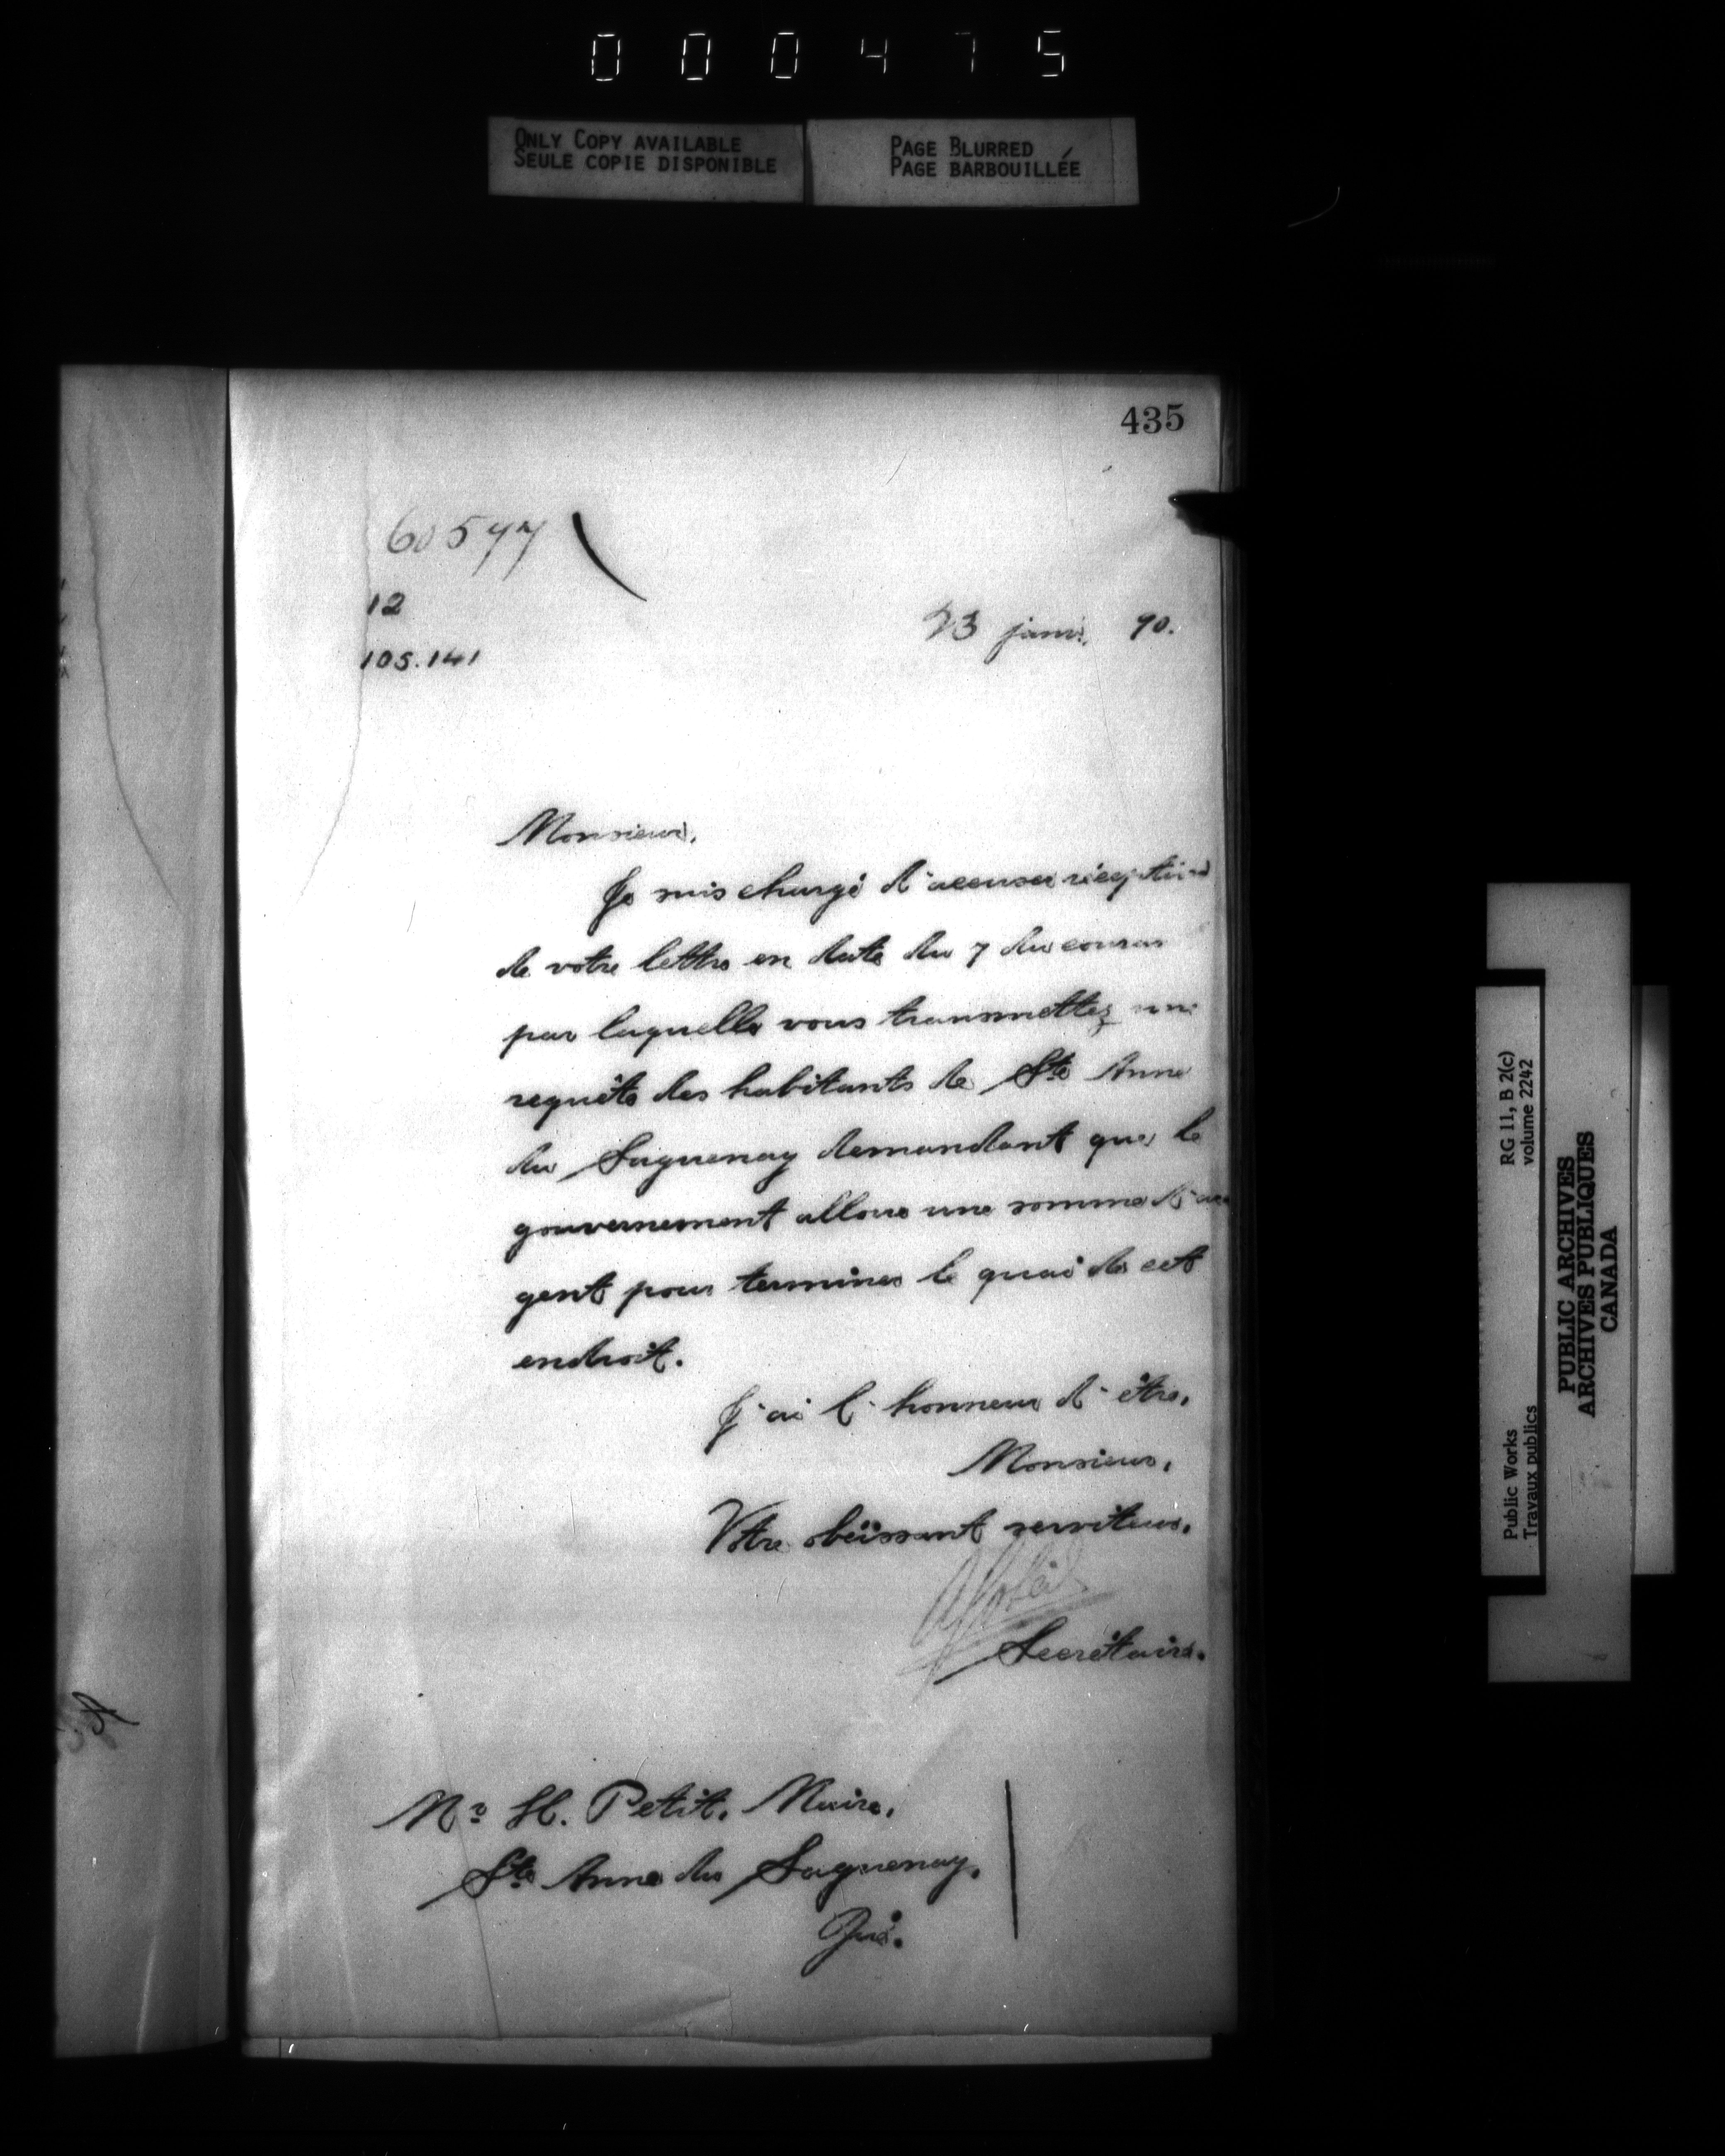 000475
ONLY COPY AVAILABLE
SEULE COPIE DISPONIBLE
PAGE BLURRED
PAGE BARBOUILLÉE
435
60577
12
105.141
23 janv. 90.
Monsieur,
Je suis chargé d'accuser réception
de votre lettre en date du 7 du courant
par laquelle vous transmettez une
requête des habitants de Ste Anne
du Saguenay demandant que le
gouvernement alloue une somme d'ar
gent pour terminer le quai de cet
endroit.
J'ai l'honneur d'être,
Monsieur,
Votre obéissant serviteur,
Secrétaire.
Mr H. Petit, Maire,
Ste Anne du Saguenay,
Qué.
RG 11, B 2(c)
volume 2242
Public Works
Travaux publics
PUBLIC ARCHIVES
ARCHIVES PUBLIQUES
CANADA